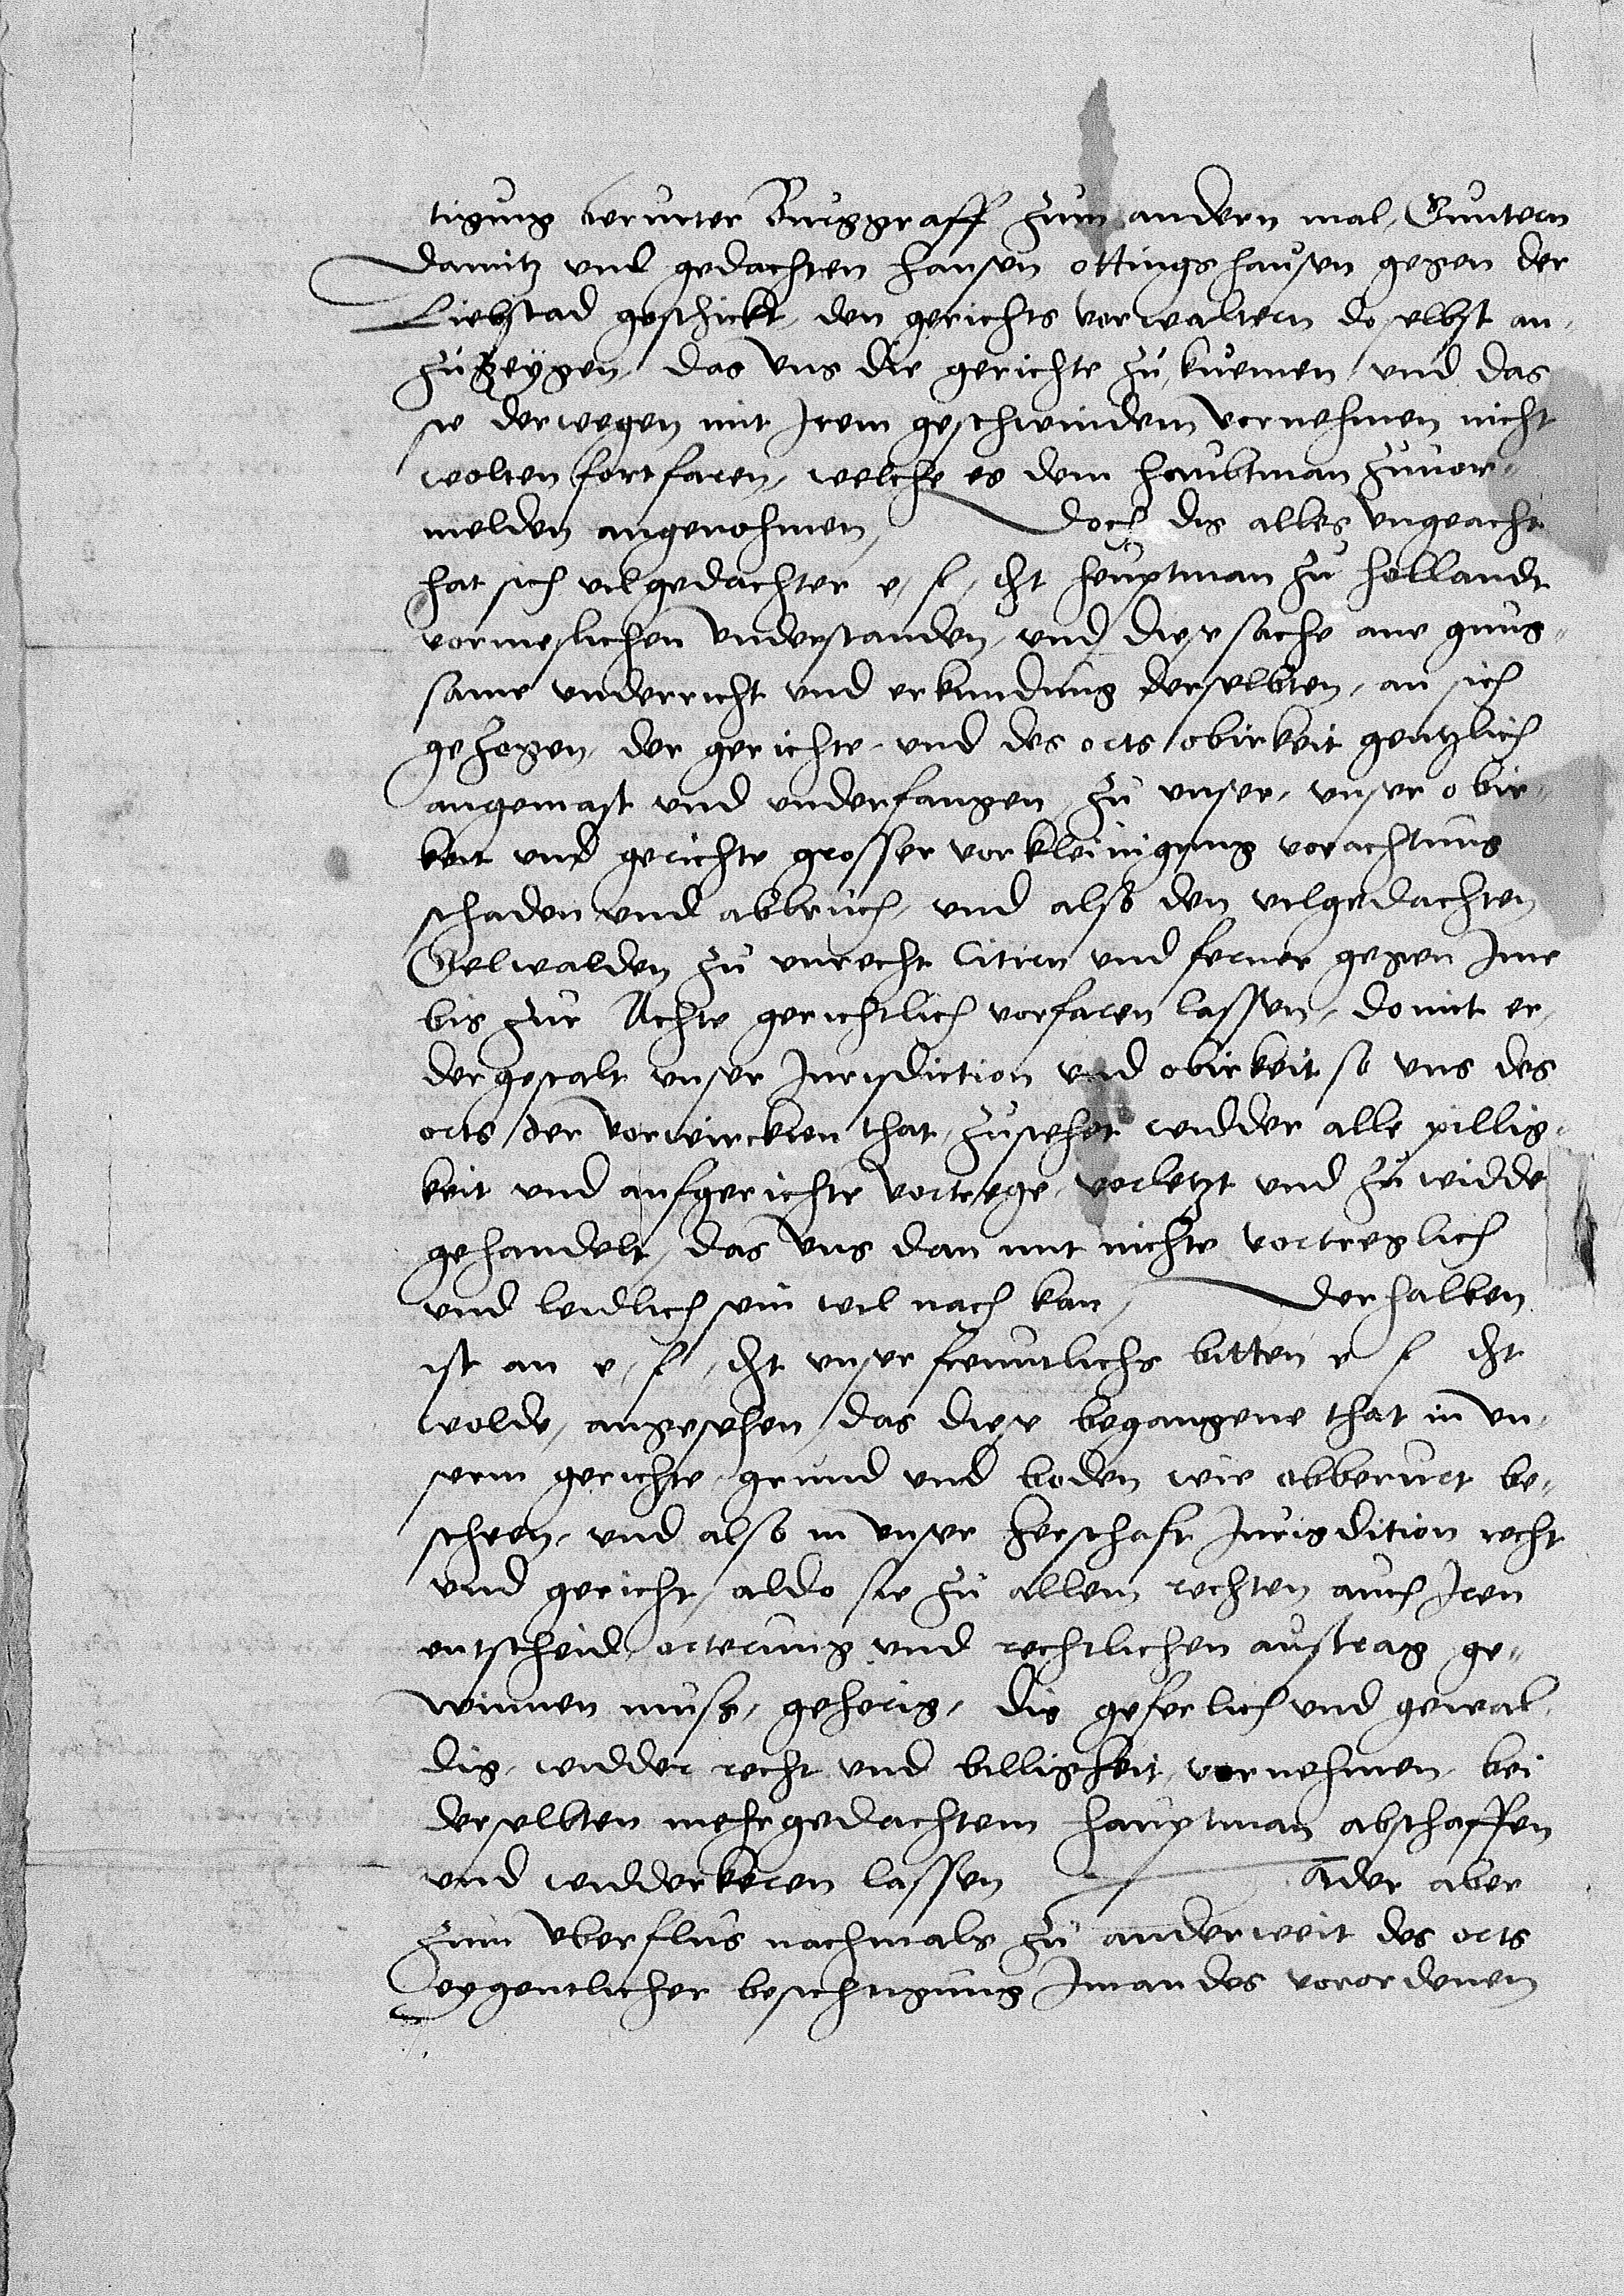 tigung berurter Burggraff zum andern mal, Guntern
Damitz und gedachten Hansen Ottingshausen gegen der
Liebstad geschickt, den gerichts vorwaltern doselbst an-
zuzeygen, das uns die gerichte zu kuemen, und das
sie derwegen mit Irem geschwindem vornehmen nicht
wolten fortfaren, welchs er dem haubtman zuuor-
melden angenohmen, Doch dis alles ungeacht
hat sich vilgedachter e, f, dht heuptman zu Hollandt
vormeslichen understanden, und diese sache ane gnug-
same underricht und erkundung derselbten, an sich
gezogen, der gerichte und des orts obirkeit gentzlich
angemast und underfangen, zu unser, unser obir-
keit und gerichte grosser vorkleinigung vorachtung
schaden und abbruch, und also den vilgedachten
Gelwalden zu unrecht Citirn und ferner gegen Ime
bis zur Achte gerichtlich vorfaren lassen, domit er,
dergestalt unser Jurisdiction und obirkeit so uns des
orts der vorwirckten that, zustehet widder alle pillig-
keit und aufgerichte vortrege, vorletzt und zu widde
gehandelt, das uns dan mit nichte vortreglich
und leidlich sein wil nach kan, Derhalben
ist an e, f, dht unser freuntlichs bitten e f dht
wolde, angesehen, das diese begangene that in un-
serm gerichte, grund und boden wie obberurt be-
scheen, und also in unser herschaft Jurisdition recht
und gericht, aldo sie zu allem rechten auch Iren
entscheid orterung und rechtlichen austrag ge-
winnen muss, gehorig, dis geferlich und gewal-
dig, widder recht und billigkeit, vornehmen, bei
derselbten mehrgedachtem hauptman abschaffen
und widderkeren lassen Ader aber
zum uberflus nachmals zu anderweit des orts
eygentlicher besichtigung Imandes vorordenen